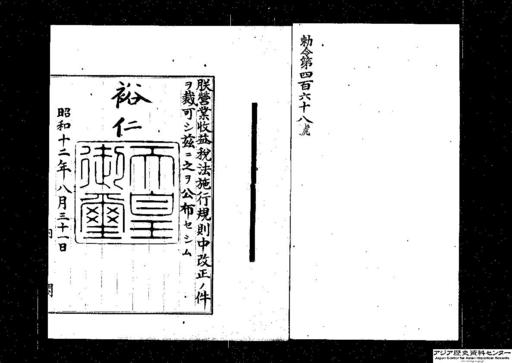 勅令第四百六十八號
朕營業收益稅法施行規則中改正ノ件
ヲ裁可シ茲ニ之ヲ公布セシム
裕仁
天皇
御璽
昭和十二年八月三十一日
内閣
アジア歴史資料センター
Japan Center for Asian Historical Records